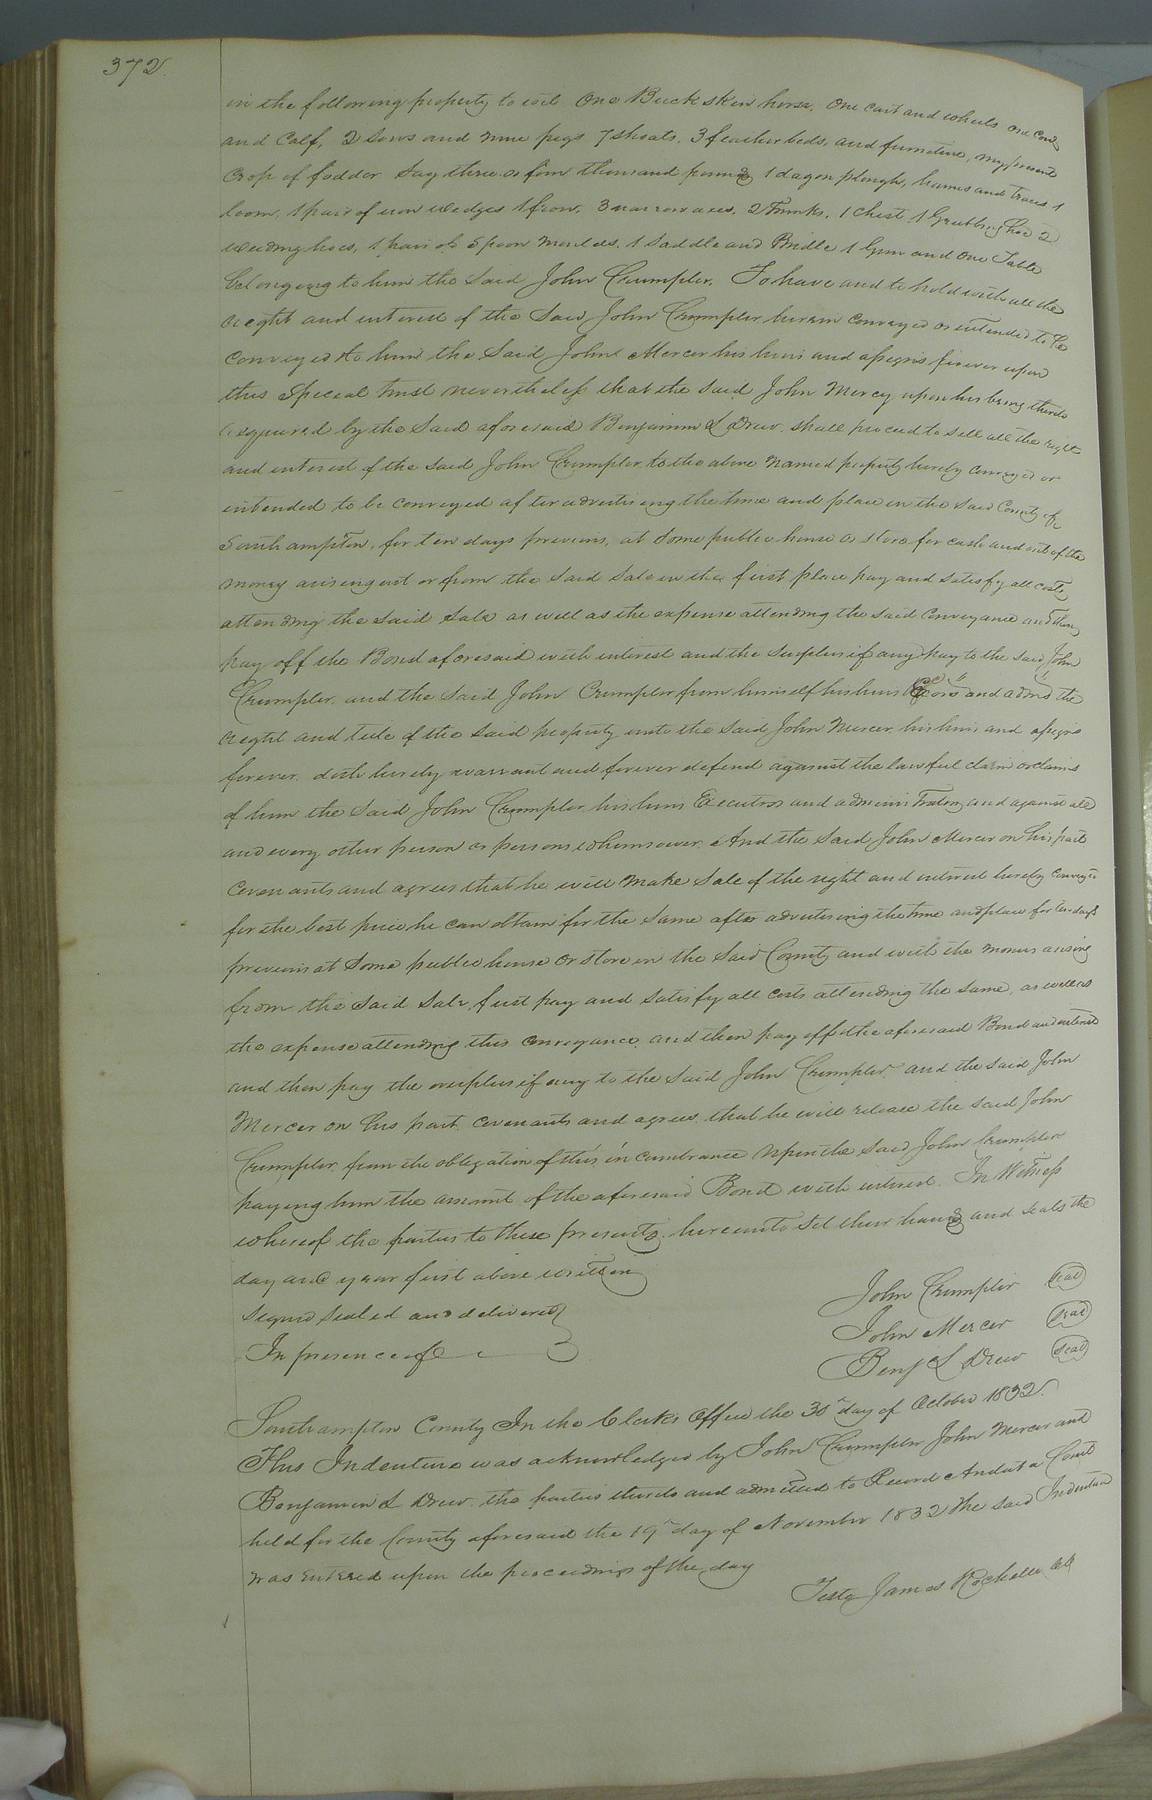 372
in the following property to wit One Buck skin horse, One cart and wheels one Cow
and Calf, 2 Sows and nine pigs 7 shoats, 3 feather beds, and furniture, my present
Crop of fodder Say three or four thousand pounds 1 dagon plough, hames and traces 1
loom, 1 pair of iron wedges 1 frow, 3 narrow axes, 2 Trunks, 1 Chest 1 Grubbing hoe 2
weeding hoes, 1 pair of Spoon Moulds, 1 Saddle and Bridle 1 Gun and One Table
belonging to him the Said John Crumpler. To have and to hold with all the
right and interest of the Said John Crumpler herein Conveyed or intended to be
Conveyed to him the Said John Mercer his heirs and assigns forever upon
this Special trust nevertheless that the Said John Mercy upon his being thereto
required by the Said aforesaid Benjamin L Drew shall proceed to sell all the right
and interest of the Said John Crumpler to the above named property hereby Conveyed or
intended to be Conveyed after advertising the time and place in the Said County of
Southampton, for ten days previous, at Some public house or store for cash and out of the
money arising out or from the Said Sale in the first place pay and Satisfy all costs
attending the Said Sale as well as the expense attending the Said Conveyance and then
pay off the Bond aforesaid with interest and the Surplus if any pay to the said John
Crumpler, and the Said John Crumpler from himself his heirs Exors and admrs the
right and title of the Said property unto the Said John Mercer his heirs and assigns
forever doth hereby warrant and forever defend against the lawful claim or claims
of him the Said John Crumpler his heirs Executors and administrators, and against all
and every other person or persons whomsoever. And the Said John Mercer on his part
Covenants and agrees that he will Make Sale of the right and interest hereby Conveyed
for the best price he can obtain for the Same after advertising the time and place for ten days
previous at Some public house or store in the Said County and with the monies arising
from the Said Sale first pay and Satisfy all Costs attending the Same, as well as
the expense attending this Conveyance, and then pay off the aforesaid Bond and interest
and then pay the overplus if any to the Said John Crumpler, and the Said John
Mercer on his part Covenants and agrees that he will release the Said John
Crumpler from the obligation of this incumbrance upon the Said John Crumpler
paying him the amount of the aforesaid Bond with interest. In Witness
whereof the parties to these presents hereunto Set their hands and Seals the
day and year first above written
Signed Sealed and delivered
In presence of
John Crumpler Seal
John Mercer Seal
Benj L Drew Seal
Southampton County In the Clerks Office the 30th day of October 1832.
This Indenture was acknowledged by John Crumpler John Mercer and
Benjamin L Drew the parties thereto and admitted to Record And at a Court
held for the County aforesaid the 19th day of November 1832 The Said Indenture
was entered upon the proceedings of the day
Teste James Rochelle